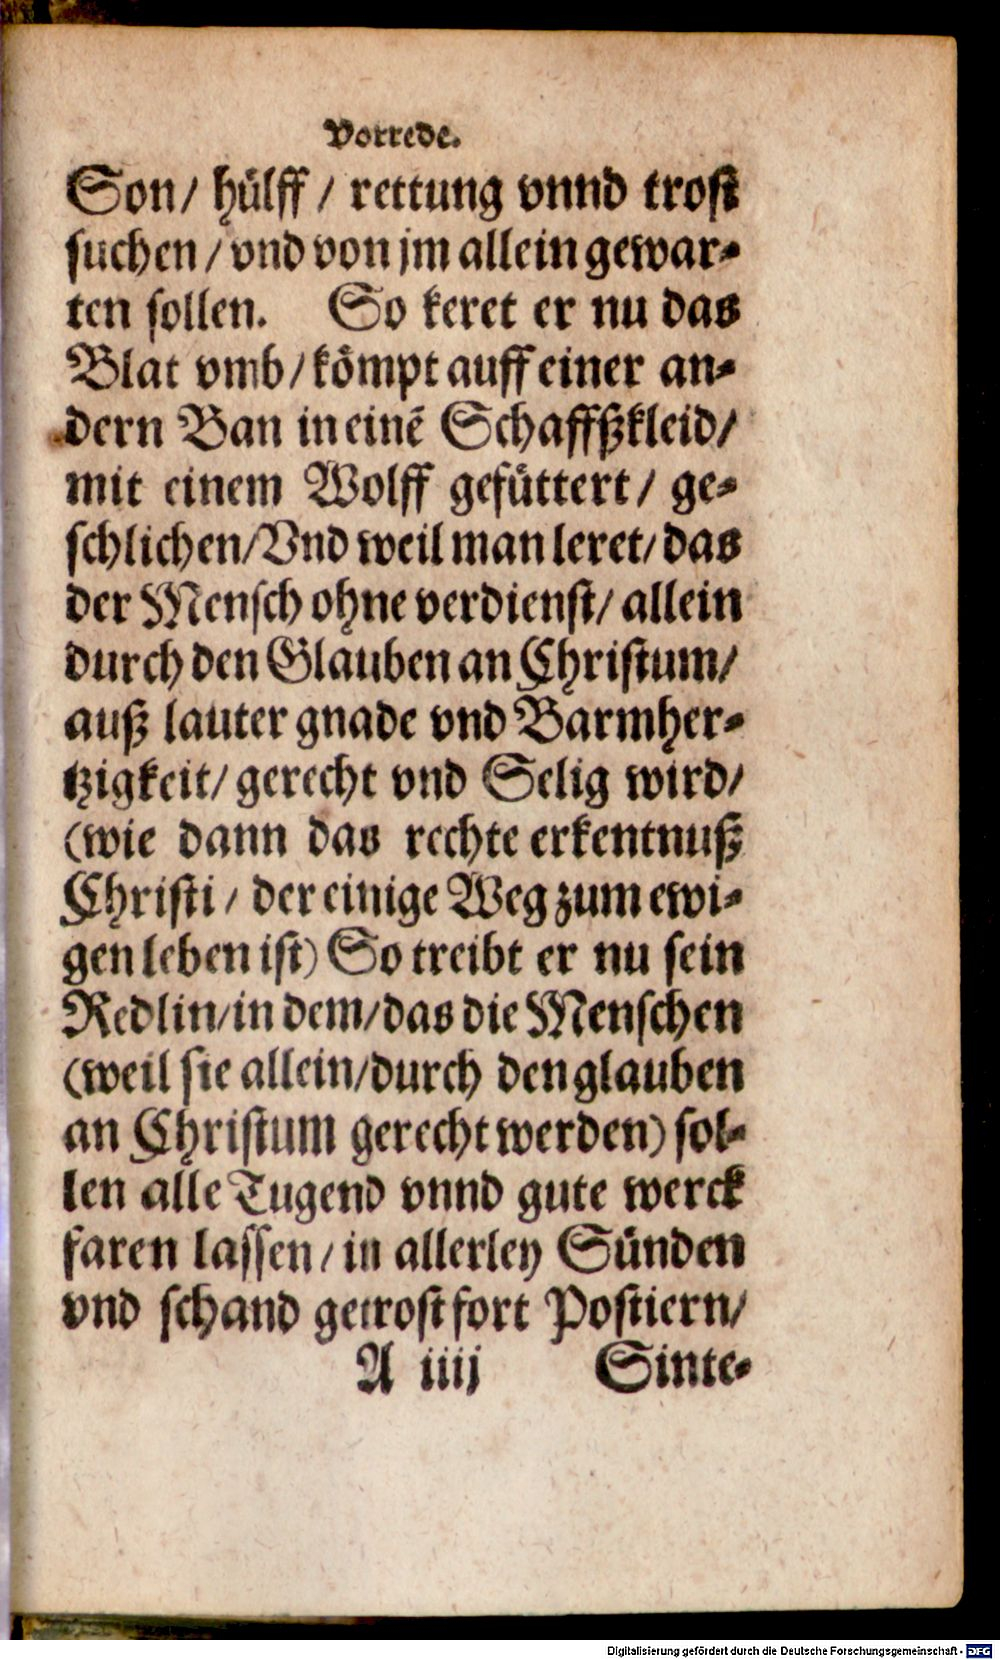 Vorrede.
Son/ hülff / rettung vnnd trost
suchen / vnd von jm allein gewar-
ten sollen. So keret er nu das
Blat vmb / kömpt auff einer an-
dern Ban in einē Schaffßkleid/
mit einem Wolff gefüttert / ge-
schlichen/Vnd weil man leret/ das
der Mensch ohne verdienst/ allein
durch den Glauben an Christum/
auß lauter gnade vnd Barmher-
tzigkeit/ gerecht vnd Selig wird/
(wie dann das rechte erkentnuß
Christi / der einige Weg zum ewi-
gen leben ist) So treibt er nu sein
Redlin/in dem/das die Menschen
(weil sie allein/durch den glauben
an Christum gerecht werden) sol-
len alle Tugend vnnd gute werck
faren lassen / in allerley Sünden
vnd schand getrost fort Postiern/
A iiij Sinte-
Digitalisierung gefördert durch die Deutsche Forschungsgemeinschaft - DFG